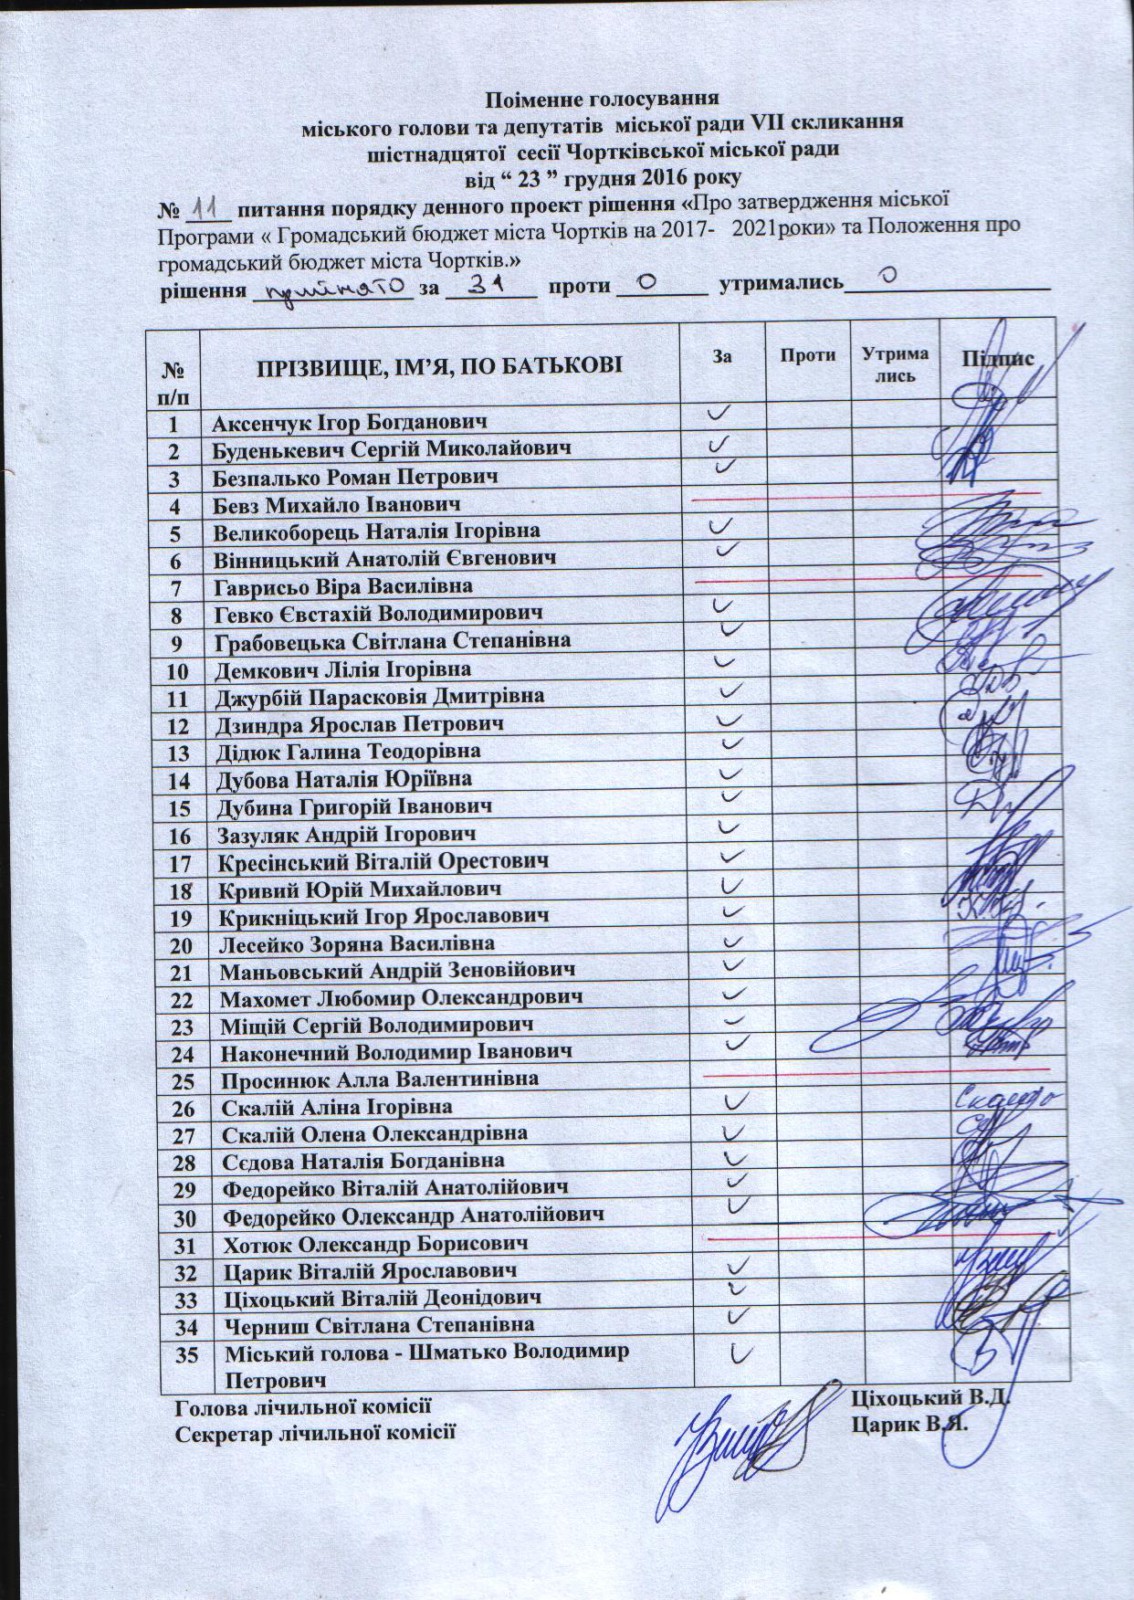 Поіменне голосування
міського голови та депутатів міської ради VII скликання
шістнадцятої сесії Чортківської міської ради
від “ 23 ” грудня 2016 року
№ 11 питання порядку денного проект рішення «Про затвердження міської
Програми « Громадський бюджет міста Чортків на 2017- 2021роки» та Положення про
громадський бюджет міста Чортків.»
рішення прийнято за 31 проти 0 утримались 0
№ п/п ПРІЗВИЩЕ, ІМ’Я, ПО БАТЬКОВІ За Проти Утрима лись Підпис
1 Аксенчук Ігор Богданович
2 Буденькевич Сергій Миколайович
3 Безпалько Роман Петрович
4 Бевз Михайло Іванович
5 Великоборець Наталія Ігорівна
6 Вінницький Анатолій Євгенович
7 Гаврисьо Віра Василівна
8 Гевко Євстахій Володимирович
9 Грабовецька Світлана Степанівна
10 Демкович Лілія Ігорівна
11 Джурбій Парасковія Дмитрівна
12 Дзиндра Ярослав Петрович
13 Дідюк Галина Теодорівна
14 Дубова Наталія Юріївна
15 Дубина Григорій Іванович
16 Зазуляк Андрій Ігорович
17 Кресінський Віталій Орестович
18 Кривий Юрій Михайлович
19 Крикніцький Ігор Ярославович
20 Лесейко Зоряна Василівна
21 Маньовський Андрій Зеновійович
22 Махомет Любомир Олександрович
23 Міщій Сергій Володимирович
24 Наконечний Володимир Іванович
25 Просинюк Алла Валентинівна
26 Скалій Аліна Ігорівна
27 Скалій Олена Олександрівна
28 Сєдова Наталія Богданівна
29 Федорейко Віталій Анатолійович
30 Федорейко Олександр Анатолійович
31 Хотюк Олександр Борисович
32 Царик Віталій Ярославович
33 Ціхоцький Віталій Деонідович
34 Черниш Світлана Степанівна
35 Міський голова - Шматько Володимир
Петрович
Голова лічильної комісії Ціхоцький В.Д.
Секретар лічильної комісії Царик В.Я.